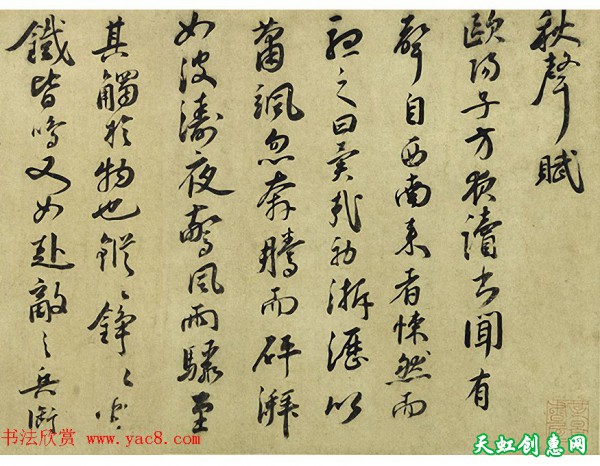 秋聲賦
歐陽子方夜讀書聞有
聲自西南來者悚然而
聽之曰異哉初淅瀝以
蕭颯忽奔騰而砰湃
如波濤夜驚風雨驟至
其觸於物也鏦〻錚〻金
鐵皆鳴又如赴敵之兵銜
书法欣赏 www.yac8.com
天虹创惠网